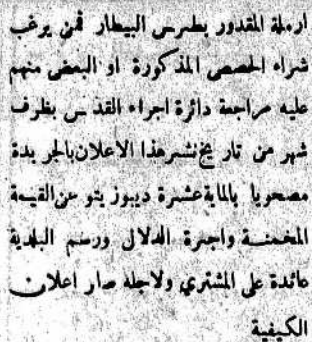 ارملة المغدور بطرس البيطار فمن يرغب
شراء الحصص المذكورة او البعض منهم
عليه مراجعة دائرة اجراء القدس بظرف
شهر من تاريخ نشر هذا الاعلان بالجريدة
مصحوبا بالماية عشرة ديبوزيتو عن القيمة
المخمنة واجرة الدلال ورسم البلدية
عائدة على المشتري ولاجله صار اعلان
الكيفية